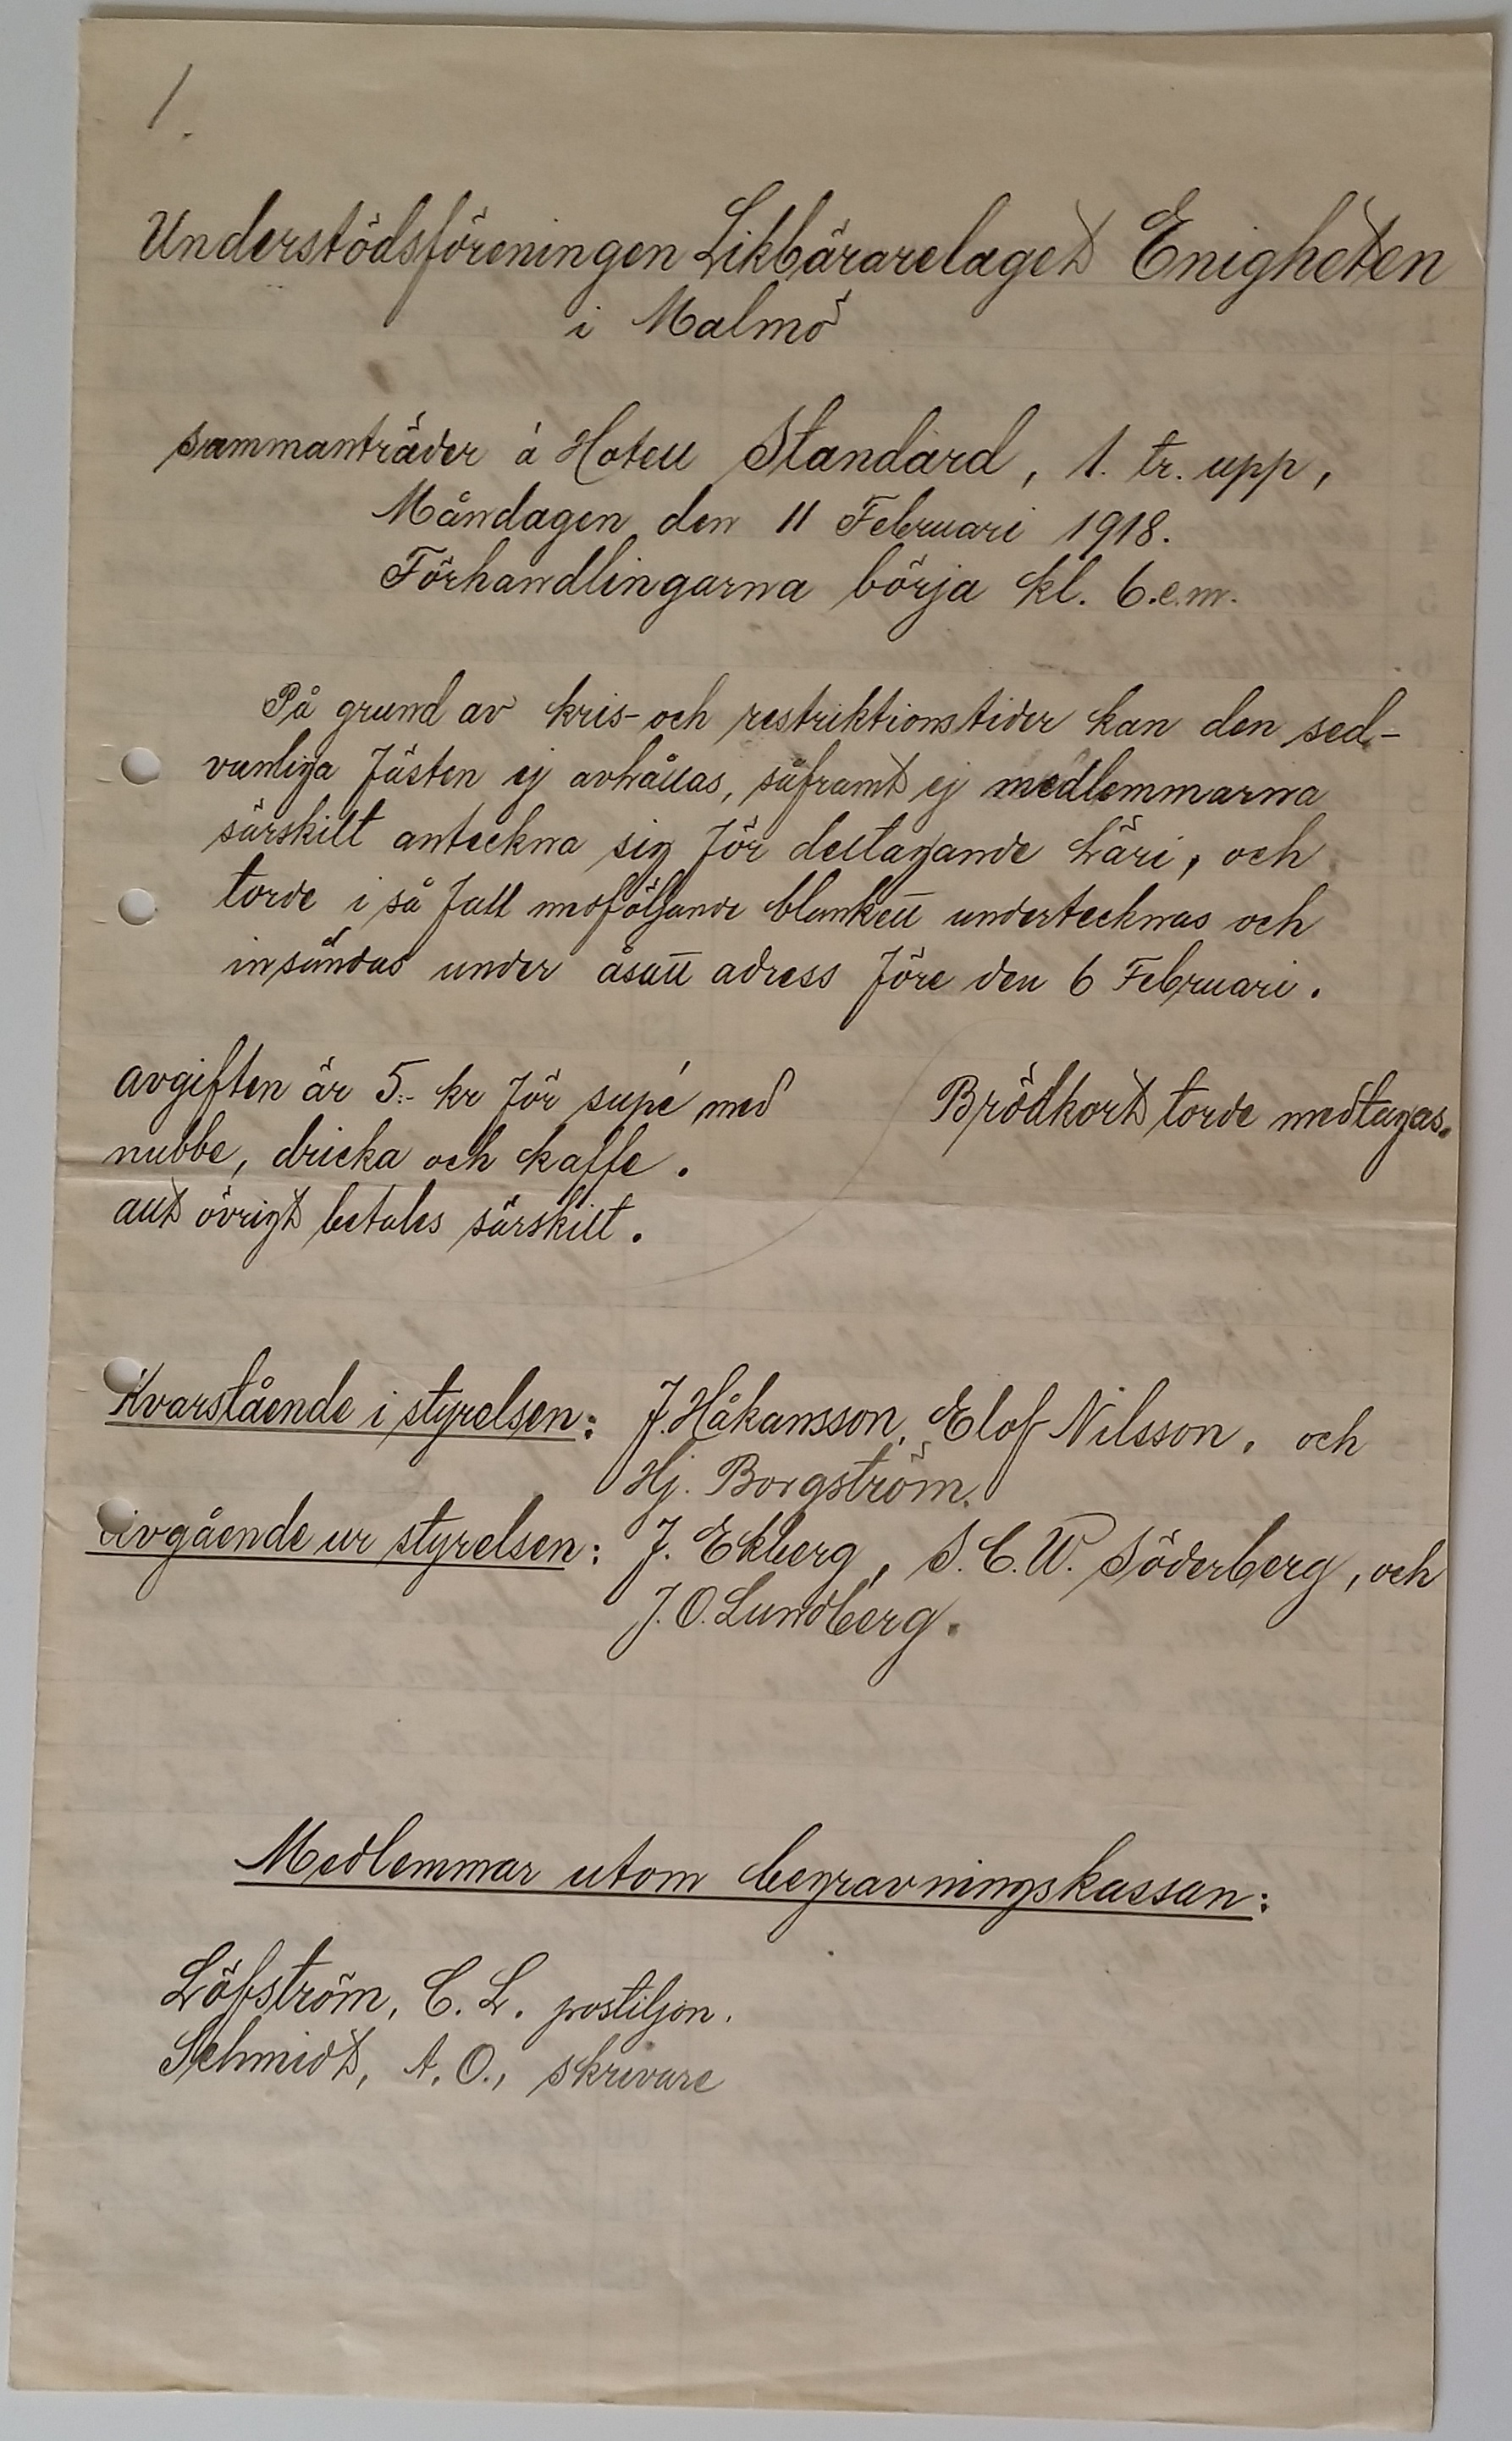 1.
Understödsföreningen Likbärarelaget Enigheten
i Malmö
sammanträder å Hotell Standard, 1. tr. upp,
Måndagen den 11 Februari 1918.
Förhandlingarna börja kl. 6. e.m.
På grund av kris- och restriktionstider kan den sed-
vanliga festen ej avhållas, såframt ej medlemmarna
särskilt anteckna sig för deltagande häri, och
torde i så fall medföljande blankett undertecknas och
insändas under åsatt adress före den 6 Februari.
avgiften är 5:- kr för supé med
nubbe, dricka och kaffe.
allt övrigt betales särskilt.
Brödkort torde medtagas.
Kvarstående i styrelsen: J. Håkansson, Elof Nilsson, och
Hj. Borgström.
Avgående ur styrelsen: J. Ekberg, S. C. W. Söderberg, och
J. O. Lundberg.
Medlemmar utom begravningskassan:
Löfström, C. L. postiljon.
Schmidt, A. O., skrivare